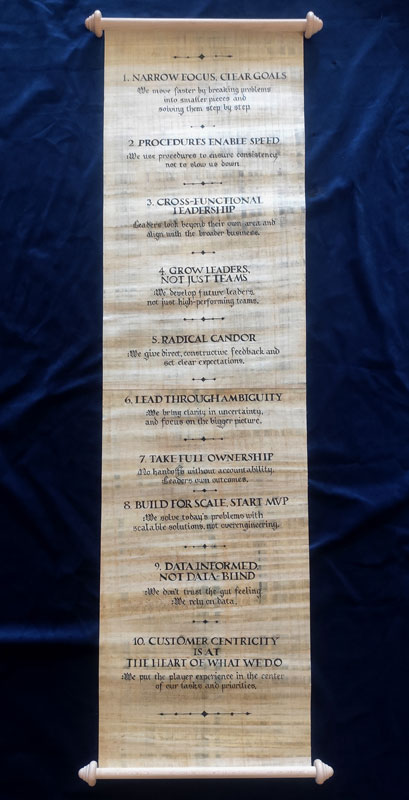 1. NARROW FOCUS, CLEAR GOALS
We move faster by breaking problems
into smaller pieces and
solving them step by step
2. PROCEDURES ENABLE SPEED
We use procedures to ensure consistency
not to slow us down
3. CROSS-FUNCTIONAL
LEADERSHIP
Leaders look beyond their own area and
align with the broader business.
4. GROW LEADERS,
NOT JUST TEAMS
We develop future leaders,
not just high-performing teams.
5. RADICAL CANDOR
We give direct, constructive feedback and
set clear expectations.
6. LEAD THROUGH AMBIGUITY
We bring clarity in uncertainty,
and focus on the bigger picture.
7. TAKE FULL OWNERSHIP
No handoffs without accountability.
Leaders own outcomes.
8. BUILD FOR SCALE, START MVP
We solve today's problems with
scalable solutions, not overengineering.
9. DATA INFORMED,
NOT DATA-BLIND
We don't trust the gut feeling.
We rely on data.
10. CUSTOMER CENTRICITY
IS AT
THE HEART OF WHAT WE DO
We put the player experience in the center
of our tasks and priorities.